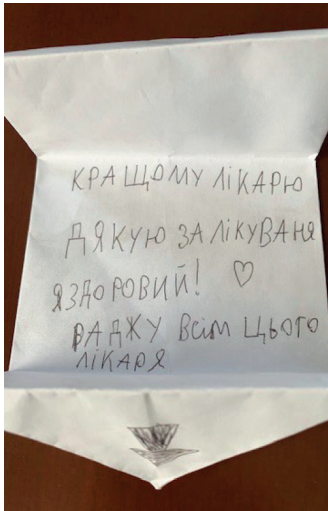 КРАЩОМУ ЛІКАРЮ
ДЯКУЮ ЗА ЛІКУВАНЯ
ЯЗДОРОВИЙ! ♡
РАДЖУ ВСІМ ЦЬОГО
ЛІКАРЯ